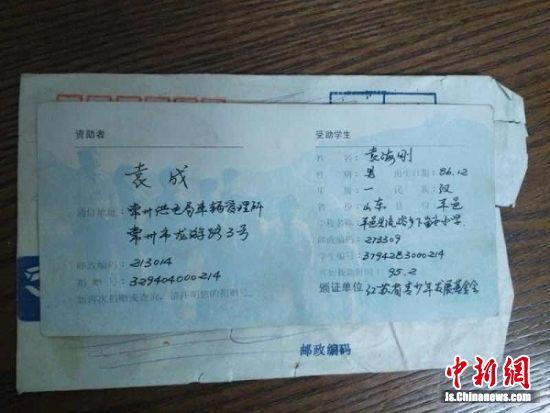 资助者
袁成
通信地址：常州供电局车辆管理所
常州市龙游路3号
邮政编码：213014
捐赠号：329404000214
如再次捐赠或查询，请注明您的捐赠号。
受助学生
姓 名：袁海刚
性 别：男 出生日期：86.12
年 级：一 民 族：汉
省 份：山东 县 份：平邑
邮政编码：273309
学生编号：3794283000214
首处拨款时间：95.2
颁证单位：江苏省青少年发展基金会
邮政编码
中新网
Js.Chinanews.com